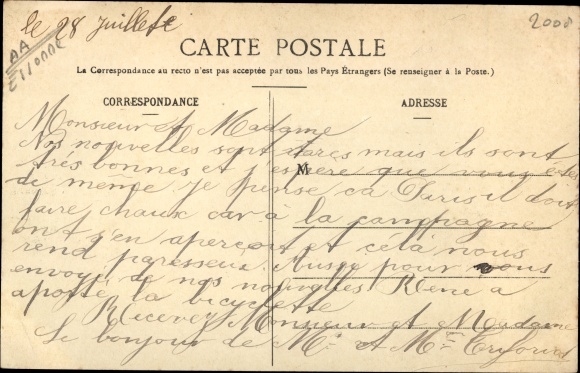 le 28 juillet
2008
AA
CARTE POSTALE
La Correspondance au recto n'est pas acceptée par tous les Pays Étrangers (Se renseigner à la Poste.)
CORRESPONDANCE
ADRESSE
M
Monsieur et Madame
Nos nouvelles sont rares mais ils sont
très bonnes et j'espère que vous êtes
de même je pense ca Paris il doit
faire chaux car à la campagne
ont s'en aperçoit et cela nous
rend paresseux. Aussi pour vous
envoyé de nos nouvelles René a
apotté la bicyclette
Recevez Monsieur et Madame
Le bonjour de Mr et Mme